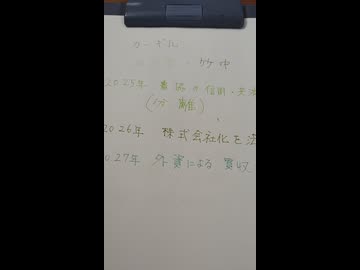 カーギル
・竹中
2025年 農協の信用・共済
(分離)
2026年 株式会社化を法
2027年 外資による 買収